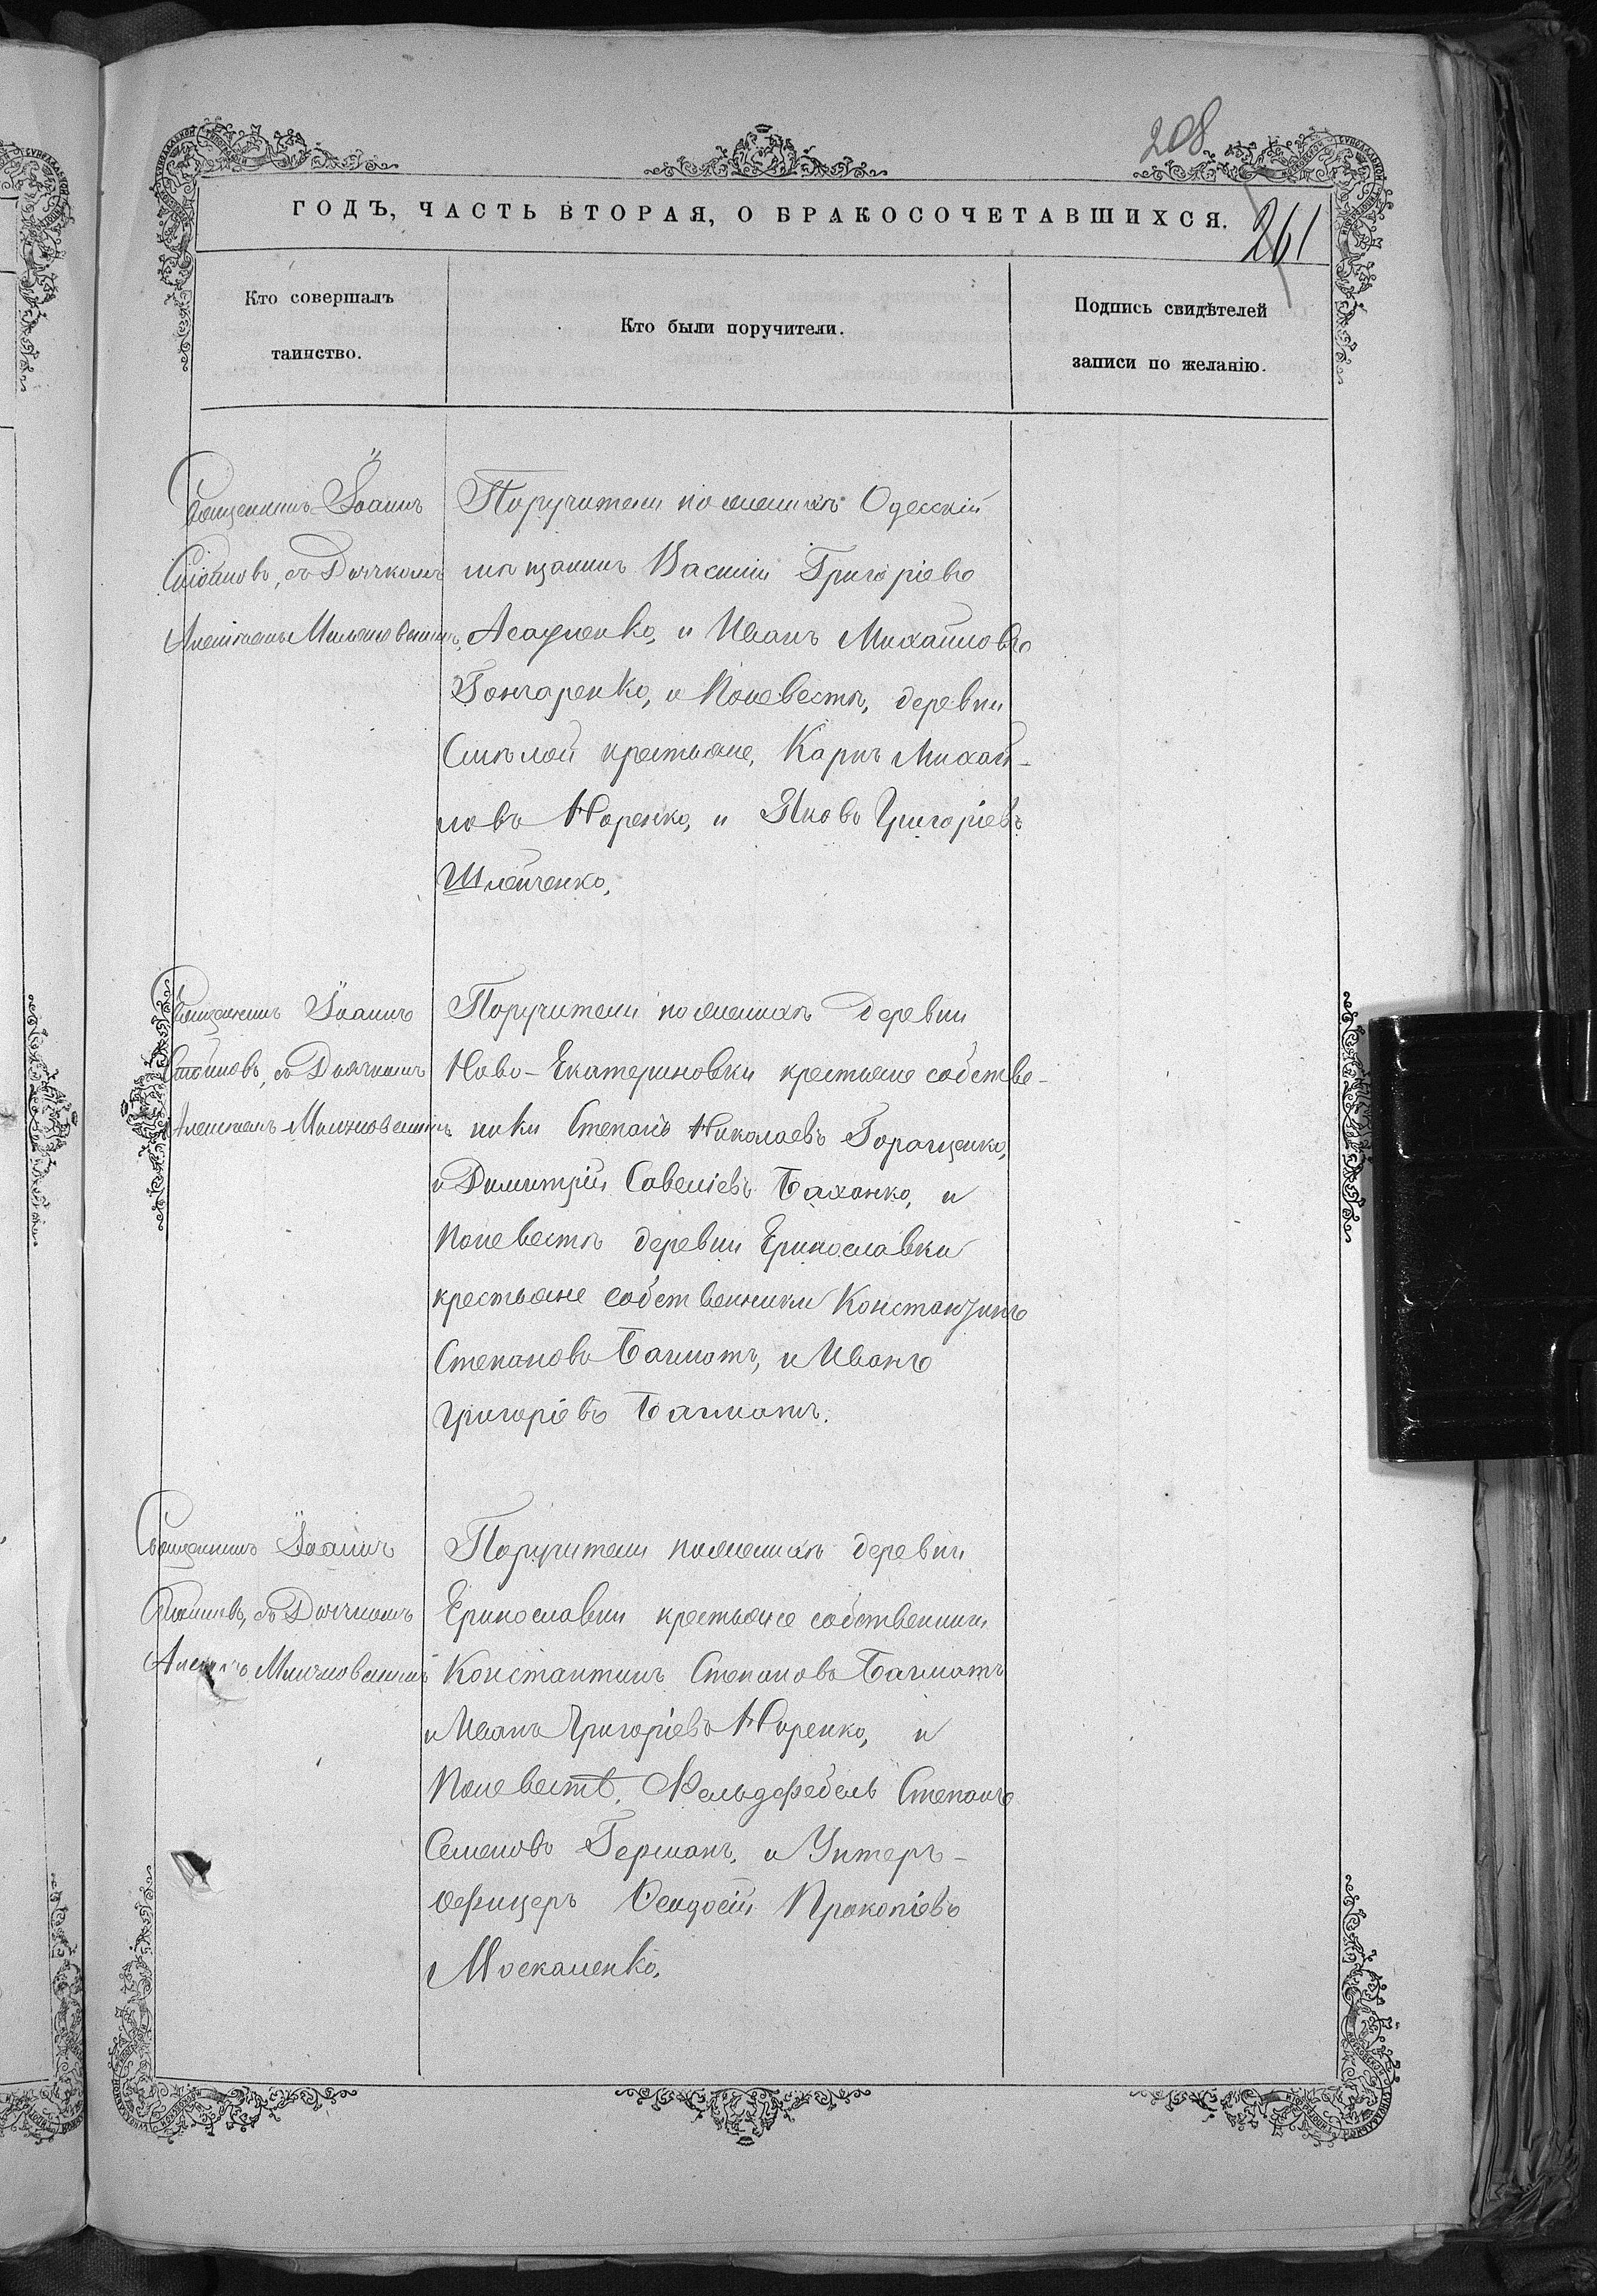 208
ГОДЪ, ЧАСТЬ ВТОРАЯ, О БРАКОСОЧЕТАВШИХСЯ.
261
Кто совершалъ
таинство.
Кто были поручители.
Подпись свидѣтелей
записи по желанію.
Священникъ Іоаннъ
Стойновъ, съ Дьячкомъ
Поручители по женихѣ Одесскій
мѣщанинъ Василій Григоріевъ
и Иванъ Михайловъ
Гончаренко, и по невѣстѣ, деревни
Смѣлой крестьяне, Карпъ Михай-
ловъ Норенко, и Яковъ Григорьевъ
Шлейченко,
Священникъ Іоаннъ
Стойновъ, съ Дьячкомъ
Поручители по женихѣ деревни
Ново-Екатериновки крестьяне собстве-
нники Степанъ Николаевъ Горащенко,
и Димитрій Савеліевъ Баханко, и
по невѣстѣ деревни
крестьяне собственники Константинъ
Степановъ Багматъ, и Иванъ
Григоріевъ Багматъ.
Священникъ Іоаннъ
Стойновъ, съ Дьячкомъ
Поручители по женихѣ деревни
крестьяне собственники
Константинъ Степановъ Багматъ
и Иванъ Григоріевъ Норенко, и
по невѣстѣ, Фельдфебель Степанъ
Семеновъ Германъ, и Унтеръ-
офицеръ Феодосій Прокопіевъ
Москаленко,